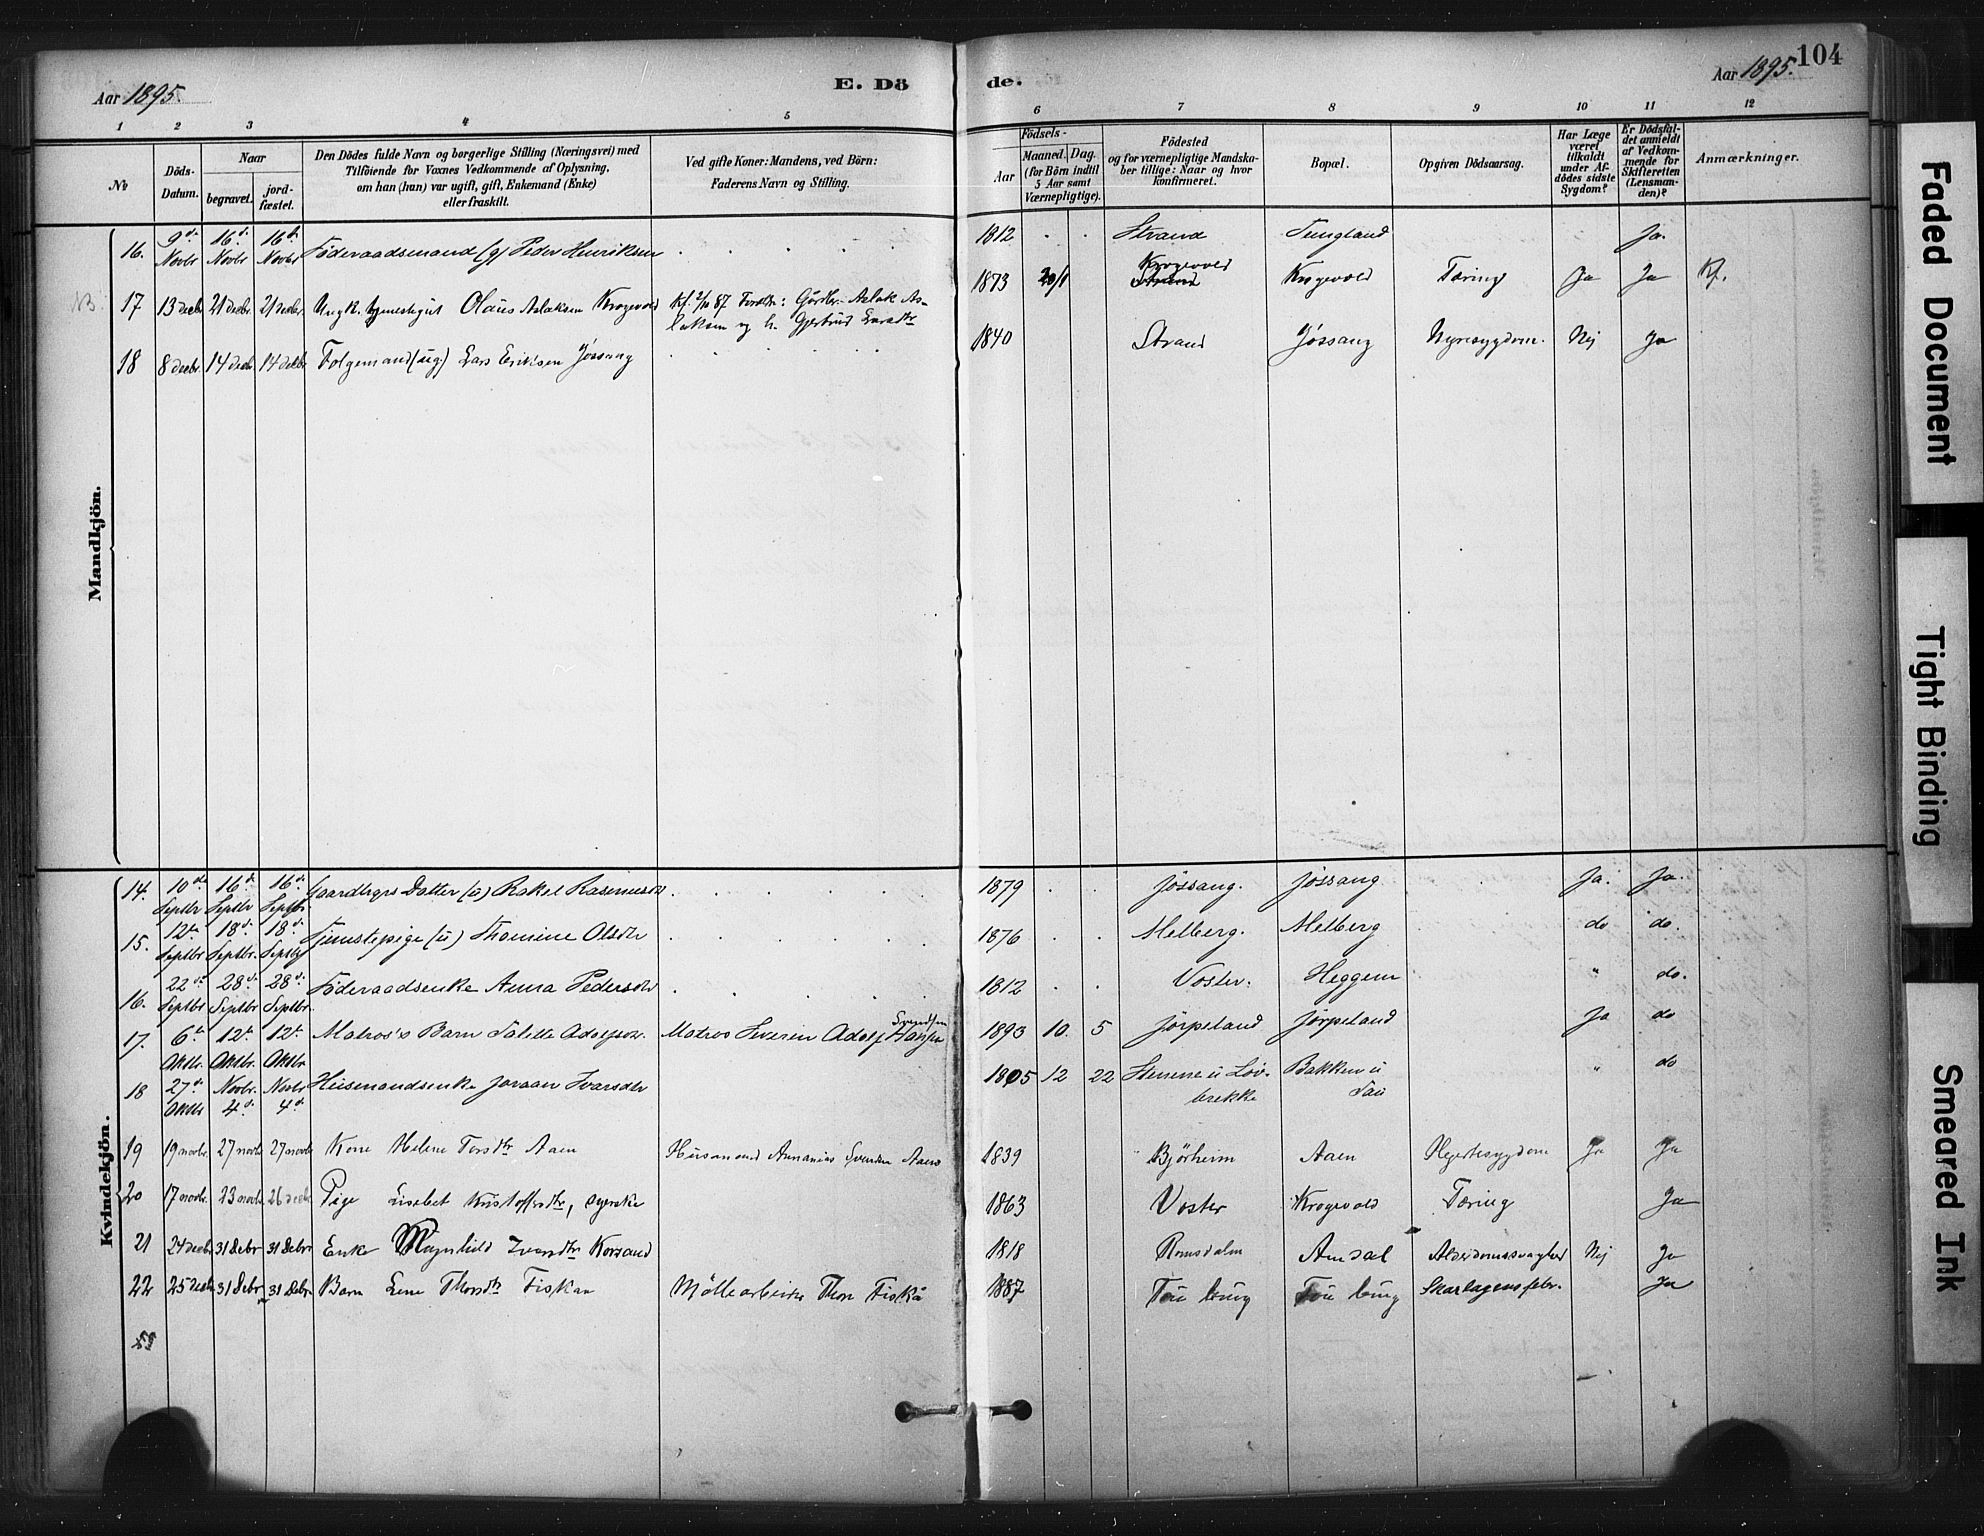 104
Aar 1895.
E. Dö
de.
Aar 1895.
1 2 3 4 5 6 7 8 9 10 11 12
No
Döds-
Datum.
Naar
begravet.
jord-
fæstet.
Den Dödes fulde Navn og borgerlige Stilling (Næringsvei) med
Tilföiende for Voxnes Vedkommende af Oplysning,
om han (hun) var ugift, gift, Enkemand (Enke)
eller fraskilt.
Ved gifte Koner: Mandens, ved Börn:
Faderens Navn og Stilling.
Födsels-
Aar
Maaned.
Dag.
(for Börn indtil
5 Aar samt
Værnepligtige).
Födested
og for værnepligtige Mandska-
ber tillige: Naar og hvor
konfirmeret.
Bopæl.
Opgiven Dödsaarsag.
Har Læge
været
tilkaldt
under Af-
dödes sidste
Sygdom?
Er Dödsfal-
det anmeldt
af Vedkom-
mende for
Skifteretten
(Lensman-
den)?
Anmærkninger.
Mandkjön.
16. 9d. Novbr 16d. Novbr 16d. Novbr Föderaadsmand (g) Peder Henriksen 1812 Strand Tungland Ja.
NB. 17 13 decbr 21 decbr 21 decbr Ungk. tjenestegut Olaus Aslaksen Krogevold Kf. 2/10 87 Foræld: Gårdbr. Aslak As-
laksen og h. Gjertrud Larsdtr 1873 20/1 Krogevold Strand Krogevold Tæring Ja Ja Kf.
18 8 decbr. 14 decbr. 14 decbr Folgemand (ug) Lars Eriksen Jøssang 1840 Strand Jøssang Nyresygdom. Nej Ja
Kvindekjön.
14. 10de Septbr 16d. Septbr 16d. Septbr Gaardbrgrs Datter (a) Rakel Rasmusdr. 1879 Jössang. Jössang Ja. Ja.
15. 12te Septbr 18d. Septbr. 18d. Septbr Tjenestepige (u) Thomine Olsdtr 1876 Melberg. Melberg do do.
16. 22d. Septbr 28d. Septbr 28d. Septbr. Föderaadsenke Anna Pedersdtr 1812 Voster. Heggem " do.
17. 6t Oktbr. 12t Oktbr. 12t Oktbr Matros's Barn Talette Adolfsdr. Matros Severin Adolf Svendsen 1893 10. 5 Jörpeland Jörpeland Ja do
18 27d Oktbr Novbr. 4d. Novbr 4d. Husmandsenke Joraan Ivarsdtr 1805 12 22 Stenene u Löv-
brekke Bakken u
Tau " do
19 19 novbr. 27 novbr 27 novbr Kone Helene Torsdtr Aaen Husmand Annanias Svendsen Aaens 1839 Björheim Aaen Hjertesygdom Ja Ja
20 17 novbr. 23 novbr. 26 decbr Pige Liselbet Kristoffersdtr, syerske 1863 Voster Krogevold Tæring Ja
21 24 decbr 31 Debr 31 Debr Enke Magnhild Iversdtr Korsand 1818 Romsdalen Amdal Alderdomssvaghed Nej Ja
22 25 decbr 31 Debr 31 Debr. Barn Lene Thorsdtr Fiskaa Möllearbeider Thore Fiskå 1887 Tou brug Tou brug Skarlagensfebr. Ja
Faded Document
Tight Binding
Smeared Ink